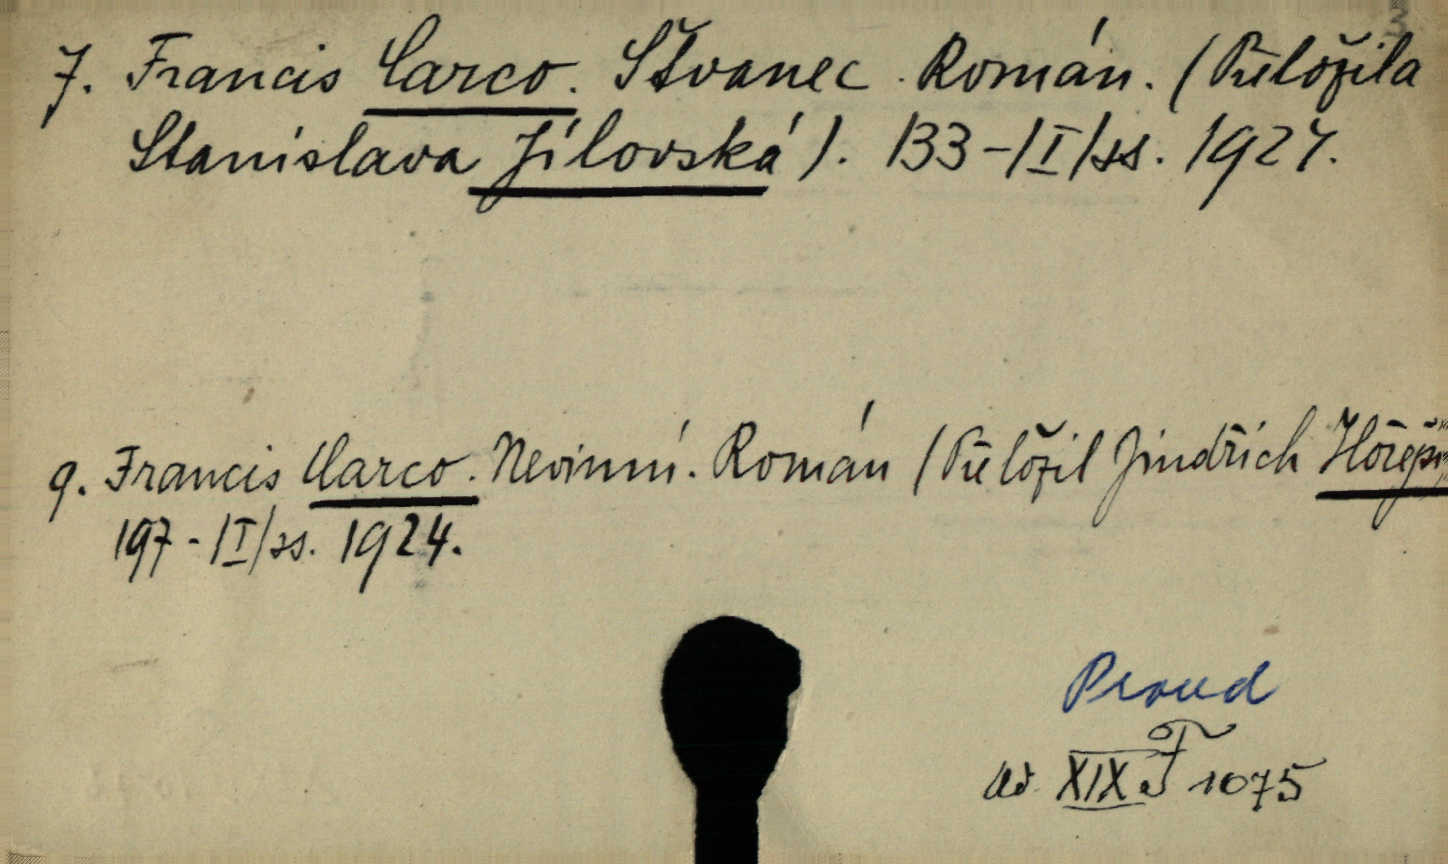 3
7. Francis Carco. Štvanec. Román. (Přeložila
Stanislava Jílovská). 133-/I/ss. 1924.
9. Francis Carco. Nevinní. Román (Přeložil Jindřich Hořejší
197-/I/ss. 1924.
Proud
ad XIX F 1075